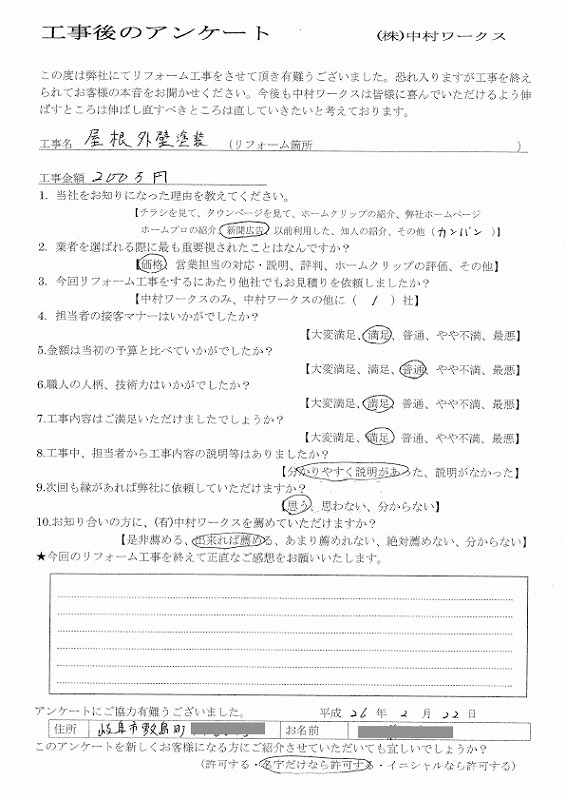 工事後のアンケート (株)中村ワークス
この度は弊社にてリフォーム工事をさせて頂き有難うございました。恐れ入りますが工事を終え
られてお客様の本音をお聞かせください。今後も中村ワークスは皆様に喜んでいただけるよう伸
ばすところは伸ばし直すべきところは直していきたいと考えております。
工事名 屋根外壁塗装 (リフォーム箇所 )
工事金額 200万円
1. 当社をお知りになった理由を教えてください。
【チラシを見て、タウンページを見て、ホームクリップの紹介、弊社ホームページ
ホームプロの紹介、新聞広告、以前利用した、知人の紹介、その他（カンバン）】
2. 業者を選ばれる際に最も重要視されたことはなんですか？
【価格、営業担当の対応・説明、評判、ホームクリップの評価、その他】
3. 今回リフォーム工事をするにあたり他社でもお見積りを依頼しましたか？
【中村ワークスのみ、中村ワークスの他に（ 1 ）社】
4. 担当者の接客マナーはいかがでしたか？
【大変満足、満足、普通、やや不満、最悪】
5.金額は当初の予算と比べていかがでしたか？
【大変満足、満足、普通、やや不満、最悪】
6.職人の人柄、技術力はいかがでしたか？
【大変満足、満足、普通、やや不満、最悪】
7.工事内容はご満足いただけましたでしょうか？
【大変満足、満足、普通、やや不満、最悪】
8.工事中、担当者から工事内容の説明等はありましたか？
【分かりやすく説明があった、説明がなかった】
9.次回も縁があれば弊社に依頼していただけますか？
【思う、思わない、分からない】
10.お知り合いの方に、(有)中村ワークスを薦めていただけますか？
【是非薦める、出来れば薦める、あまり薦めれない、絶対薦めない、分からない】
★今回のリフォーム工事を終えて正直なご感想をお願いいたします。
アンケートにご協力有難うございました。 平成 26 年 2 月 22 日
住所 岐阜市敷島町 お名前
このアンケートを新しくお客様になる方にご紹介させていただいても宜しいでしょうか？
(許可する・名字だけなら許可する・イニシャルなら許可する)